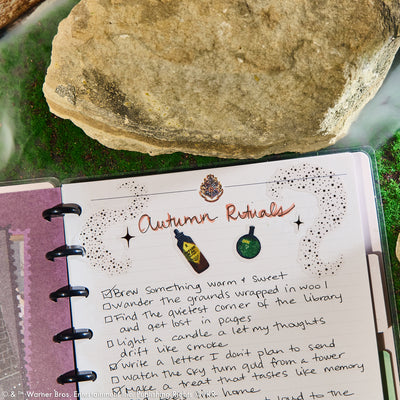 Autumn Rituals
Brew something warm & sweet
Wander the grounds wrapped in wool
Find the quietest corner of the library
and get lost in pages
Light a candle & let my thoughts
drift like smoke
Write a letter I don't plan to send
watch the sky turn gold from a tower
Make a treat that tastes like memory
home
to the
& ™ Warner Bros. Entertainment Inc. Publishing Rights